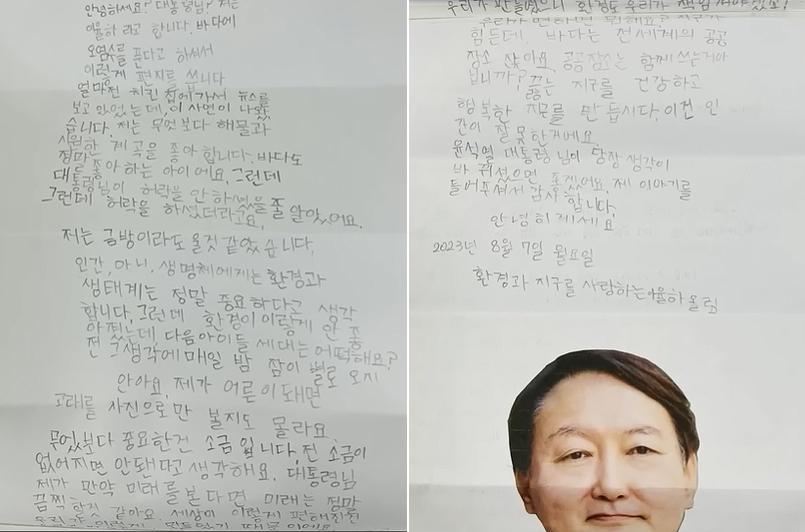 안녕하세요? 대통령님? 저는
율하 라고 합니다. 바다에
오염수를 푼다고 하셔서
이렇게 편지를 씁니다
얼마전 치킨 집에가서 뉴스를
보고 있었는데, 이 사연이 나왔
습니다. 저는 무엇보다 해물과
시원한 계곡을 좋아 합니다. 바다도
정마
을 좋아하는 아이에요. 그런데
대통령님이 허락을 안하셨을줄 알았어요.
그런데 허락을 하셨더라고요,
저는 금방이라도 울것 같았습니다.
인간, 아니. 생명체에게는 환경과
생태계는 정말 중요하다고 생각
합니다. 그런데 환경이 이렇게 안 좋
아졌는데, 다음아이들 세대는 어떡해요?
전 그생각에 매일 밤 잠이 별로 오지
안아요. 제가 어른이 돼면
고래를 사진으로만 볼지도 몰라요
무엇보다 중요한건 소금 입니다. 전 소금이
없어지면 안됀다고 생각해요. 대통령님
제가 만약 미래를 본다면 미래는 정말
끔찍 할것 같아요. 세상이 이렇게 편해진건
우리가 만들었으니 환경도 우리가 책임져야겠죠!
우리가 편하면 뭐해요? 지구가
힘든데. 바다는 전세계의 공공
장소 잖아요. 공공장소는 함께쓰는거아
닙니까? 끓는 지구를 건강하고
행복한 지구를 만듭시다. 이건 인
간이 잘 못한거에요.
윤석열 대통령님이 당장 생각이
바뀌셨으면 좋겠어요. 제 이야기를
들어주셔서 감사 합니다.
안녕히계세요
2023년 8월 7일 월요일
환경과 지구를 사랑하는 율하 올림